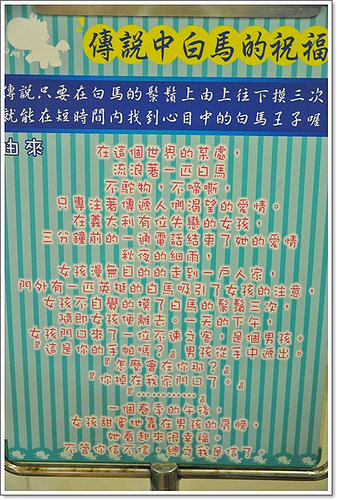 傳說中白馬的祝福
傳說只要在白馬的鬃鬚上由上往下摸三次
就能在短時間內找到心目中的白馬王子喔
由來
在這個世界的某處，
流浪著一匹白馬
不駝物，不啼嘶，
只專注著傳遞人們渴望的愛情。
在義大利有位失戀的女孩，
三分鐘前的一通電話結束了她的愛情
秋夜的細雨，
女孩漫無目的的走到一戶人家，
門外有一匹英挺的白馬吸引了女孩的注意，
女孩不自覺的摸了白馬的鬃鬚三次，
隨即女孩便離去。一天的下午，
女孩門口來了一位不速之客，是個男孩。
『這是你的手帕嗎？』男孩從手中遞出。
『怎麼會在你那？』
『你掉在我家門口了。』
『…………』
一個春季的午後，
女孩甜蜜地靠在男孩的肩膀，
她看起來很幸福。
不管你信不信，總之我是信了。